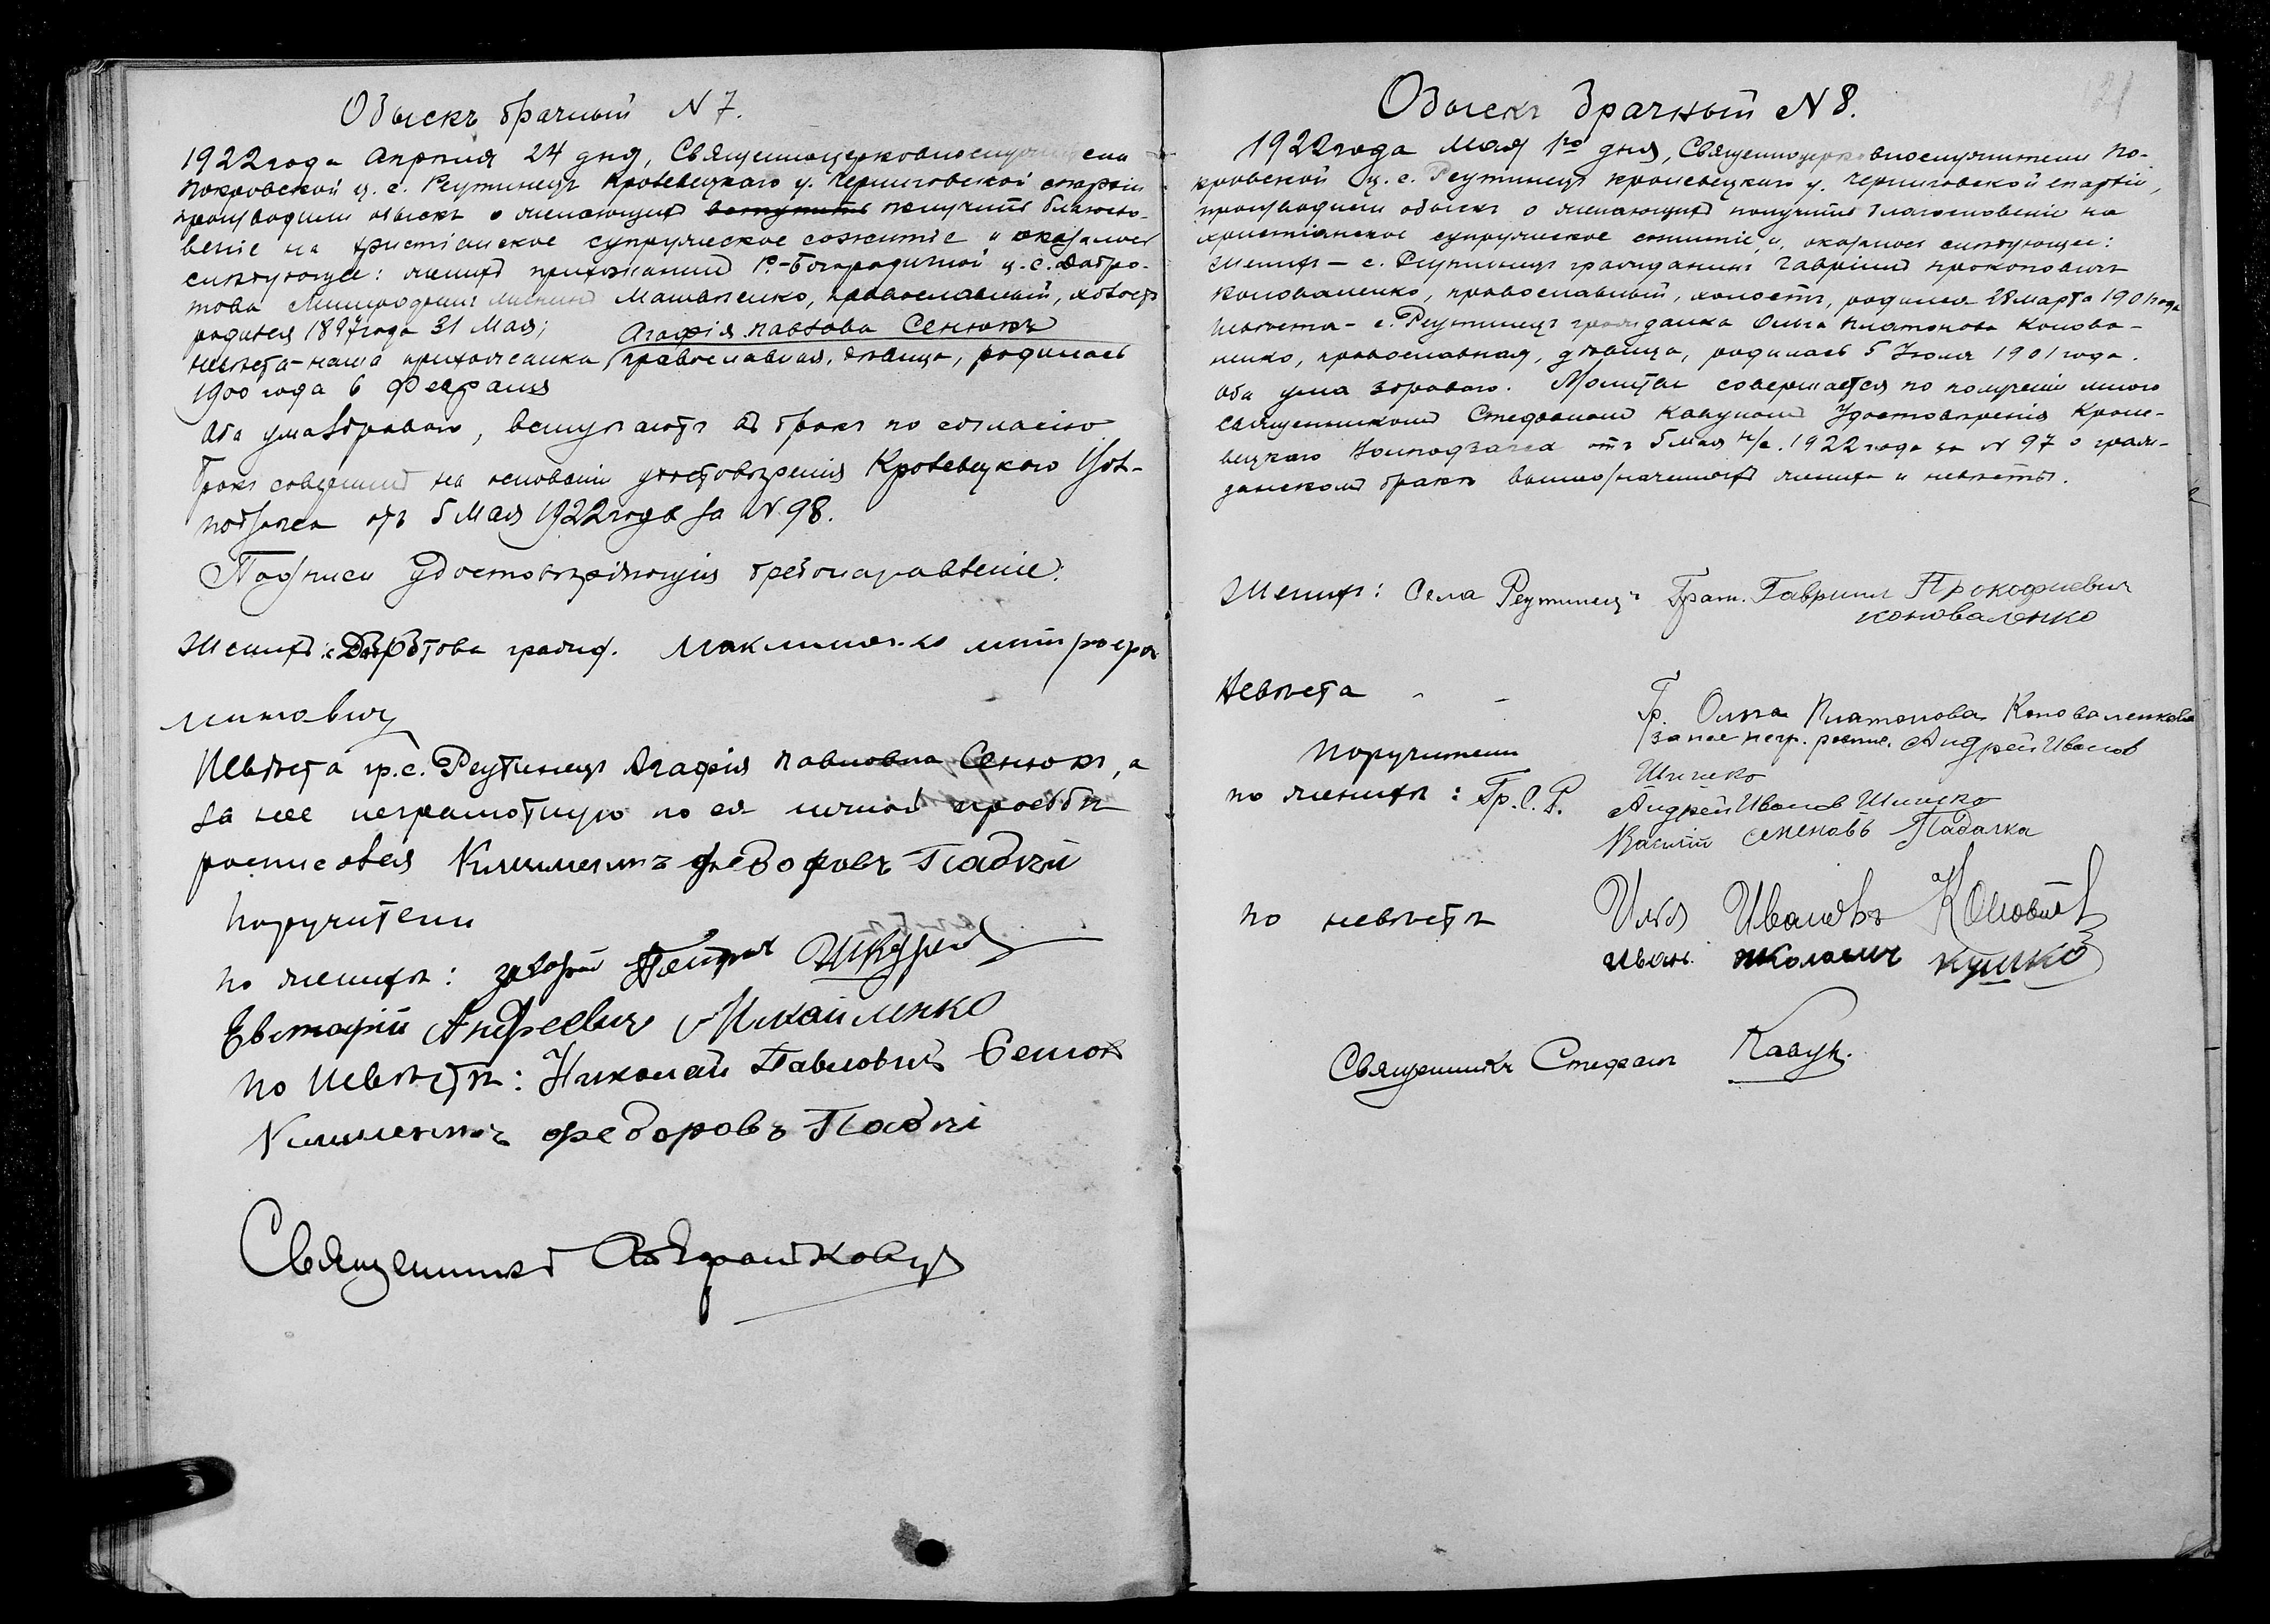 Обыскъ брачный N 7.
1922 года Апрѣля 24 дня, Священноцерковнослужители
Покровской ц. с. Реутинецъ Кролевецкаго у. Черниговской епархіи
производили обыскъ о желающихъ вступить получить благосло-
веніе на христіанское супружеское сожитіе и оказалось
слѣдующее: женихъ прихожанинъ Р.-Богородичной ц. с. Добро-
това Машненко, православный, холостъ
родился 1897 года 31 Мая; Агафія Павлова Сенюкъ
невѣста-наша прихожанка, православная, дѣвица, родилась
1900 года 6 Февраля
Оба ума здраваго, вступаютъ въ бракъ по согласію
Бракъ совершенъ на основаніи удостовѣренія Кролевецкаго
отъ 5 Мая 1922 года за N 98.
Подписи удостовѣряющія
Женихъ: с. Добротова гражд.
Невѣста гр. с. Реутинецъ Агафія Павловна Сенюкъ, а
за нее неграмотную по ея личной просьбѣ
росписался Климентъ Федоровъ
Поручители
по женихѣ:
Евстафій Андреевич Михайленко
по Невѣстѣ: Николай Павловичъ Сенюкъ
Климентъ Федоровъ
Священникъ
21
Обыскъ Брачный N 8.
1922 года Мая 1го дня, Священноцерковнослужители По-
кровской ц. с. Реутинецъ Кролевецкаго у. Черниговской епархіи,
производили обыскъ о желающихъ получить благословеніе на
христіанское супружеское сожитіе, и оказалось слѣдующее:
Женихъ - с. Реутинецъ гражданинъ Гавріилъ Прокоповичъ
Коноваленко, православный, холостъ, родился 28 марта 1901 года
Невѣста - с. Реутинецъ гражданка Ольга Платонова Конова-
ленко, православная, дѣвица, родилась 5 Іюля 1901 года.
Оба ума здраваго. Молитвы совершается по полученіи мною
священникомъ Стефаномъ Кавуномъ Удостовѣренія Кроле-
вецкаго отъ 5 мая н/с. 1922 года за N 97 о граж-
данскомъ бракѣ вышеозначенныхъ жениха и невѣсты.
Женихъ: Села Реутинецъ Граж. Гавриил Прокофиевич
коноваленко
Невѣста - - Гр. Ольга Платонова Коноваленкова
за нее негр. роспис. Андрей Иванов
Поручители
по женихѣ: Гр. С. Р. Андрей Иванов
Василій Семеновъ Падалка
по невѣстѣ Илья Ивановъ
Иван
Священникъ Стефанъ Кавун.